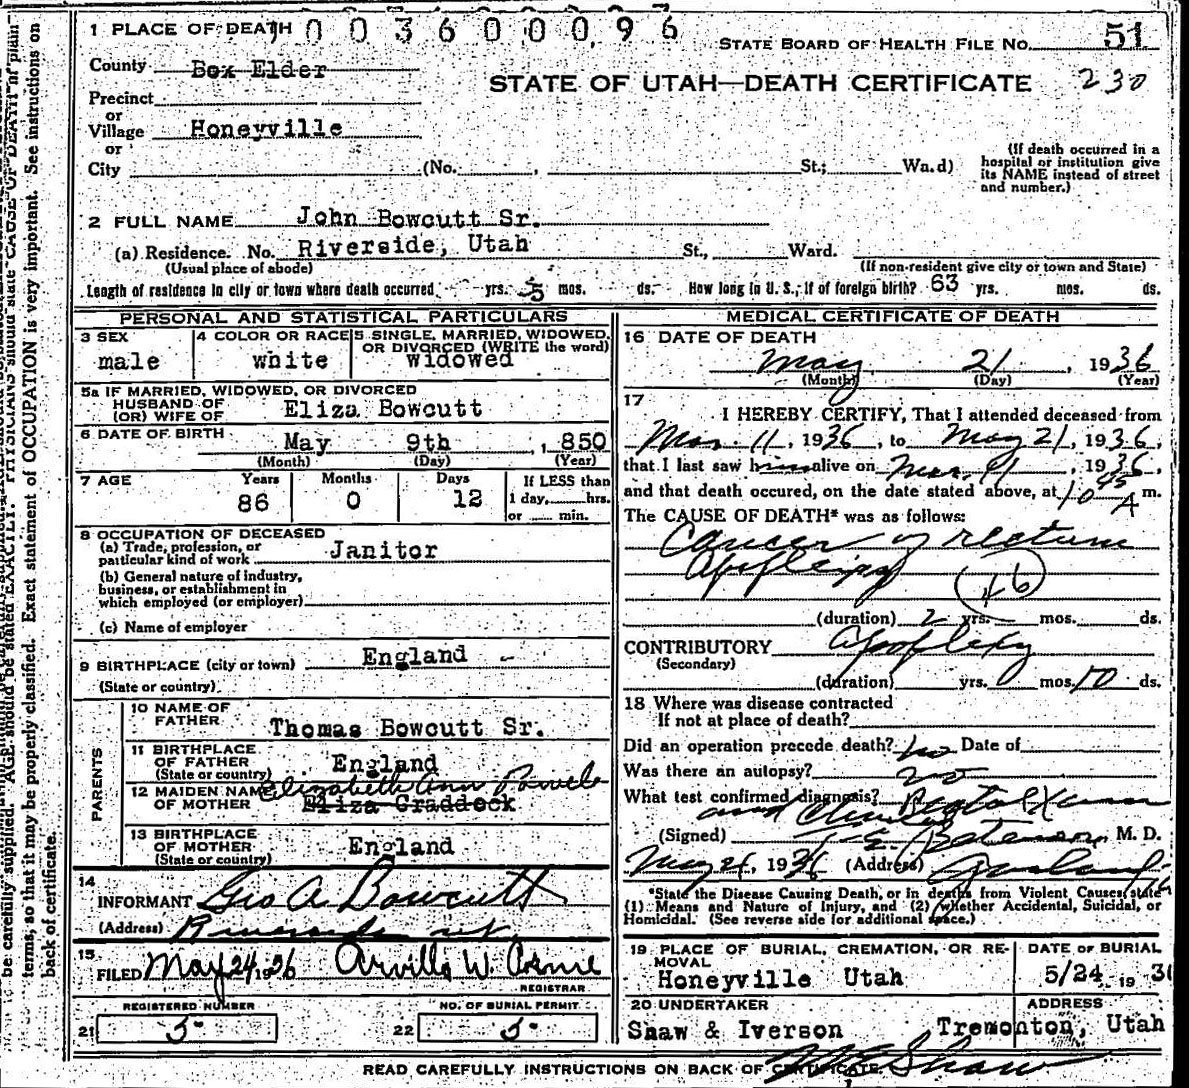 1 PLACE OF DEATH 0 0 3 6 0 0 0 9 6
STATE BOARD OF HEALTH FILE No. 51
County Box Elder
STATE OF UTAH—DEATH CERTIFICATE 230
Precinct
or
Village Honeyville
or
City (No. , St.; Wa.d)
(If death occurred in a hospital or institution give its NAME instead of street and number.)
2 FULL NAME John Bowcutt Sr.
(a) Residence. No. Riverside, Utah St., Ward.
(Usual place of abode) (If non-resident give city or town and State)
Length of residence in city or town where death occurred yrs. 5 mos. ds. How long in U. S., if of foreign birth? 63 yrs. mos. ds.
PERSONAL AND STATISTICAL PARTICULARS
3 SEX male
4 COLOR OR RACE white
5 SINGLE, MARRIED, WIDOWED, OR DIVORCED (WRITE the word) widowed
5a IF MARRIED, WIDOWED, OR DIVORCED
HUSBAND OF
(OR) WIFE OF Eliza Bowcutt
6 DATE OF BIRTH May 9th , 1850
(Month) (Day) (Year)
7 AGE Years Months Days If LESS than
86 0 12 1 day, hrs.
or min.
8 OCCUPATION OF DECEASED
(a) Trade, profession, or
particular kind of work Janitor
(b) General nature of industry,
business, or establishment in
which employed (or employer)
(c) Name of employer
9 BIRTHPLACE (city or town) England
(State or country)
PARENTS
10 NAME OF
FATHER Thomas Bowcutt Sr.
11 BIRTHPLACE
OF FATHER England
(State or country)
12 MAIDEN NAME Elizabeth Ann
OF MOTHER Eliza Craddock
13 BIRTHPLACE
OF MOTHER England
(State or country)
14
INFORMANT Geo A. Bowcutt
(Address) Riverside ut
15
FILED May 24 1936 Arvilla W.
REGISTRAR
REGISTERED NUMBER
21 5
NO. OF BURIAL PERMIT
22 5
MEDICAL CERTIFICATE OF DEATH
16 DATE OF DEATH
May 21 , 1936
(Month) (Day) (Year)
17
I HEREBY CERTIFY, That I attended deceased from
Mar. 11, 1936, to May 21, 1936,
that I last saw him alive on Mar. 11 1936,
and that death occured, on the date stated above, at 10 45 A m.
The CAUSE OF DEATH* was as follows:
Cancer of rectum
46
(duration) 2 yrs. mos. ds.
CONTRIBUTORY Apoplexy
(Secondary)
(duration) yrs. 0 mos. 10 ds.
18 Where was disease contracted
If not at place of death?
Did an operation precede death? no Date of
Was there an autopsy? no
What test confirmed diagnosis? Rectal Exam
and
(Signed) M. D.
May 24, 1936 (Address) Garland
*State the Disease Causing Death, or in deaths from Violent Causes, state
(1) Means and Nature of Injury, and (2) whether Accidental, Suicidal, or
Homicidal. (See reverse side for additional space.)
19 PLACE OF BURIAL, CREMATION, OR RE-
MOVAL
Honeyville Utah
DATE OF BURIAL
5/24 19 36
20 UNDERTAKER
Shaw & Iverson
ADDRESS
Tremonton, Utah
Shaw
READ CAREFULLY INSTRUCTIONS ON BACK OF CERTIFICATE
be carefully supplied. AGE should be stated EXACTLY. PHYSICIANS should state CAUSE OF DEATH in plain
terms, so that it may be properly classified. Exact statement of OCCUPATION is very important. See instructions on
back of certificate.